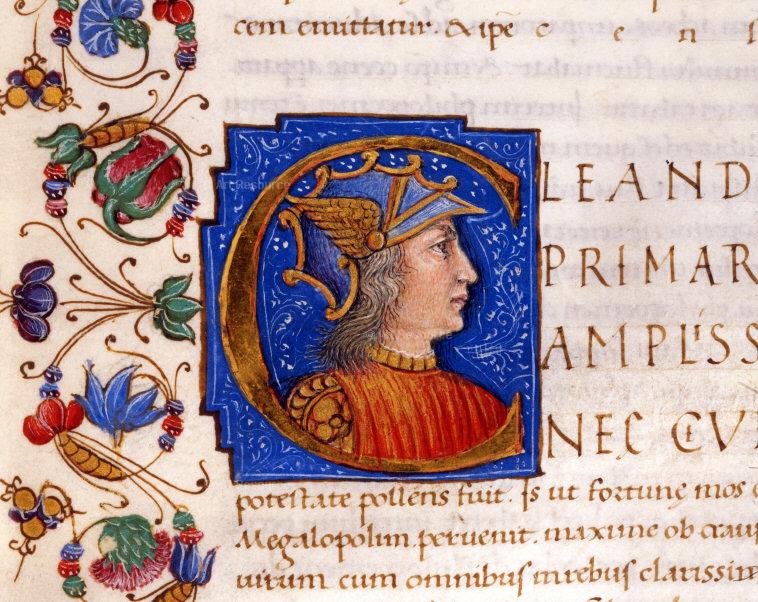 cem emittatur & ipē c e n
CLEAND
PRIMAR
AMPLISS
NEC CIV
potestate pollens fuit. Is ut fortunę mos
Megalopolim peruenit. maxime ob
uirum cum omnibus in rebus clarissim
Art Resource